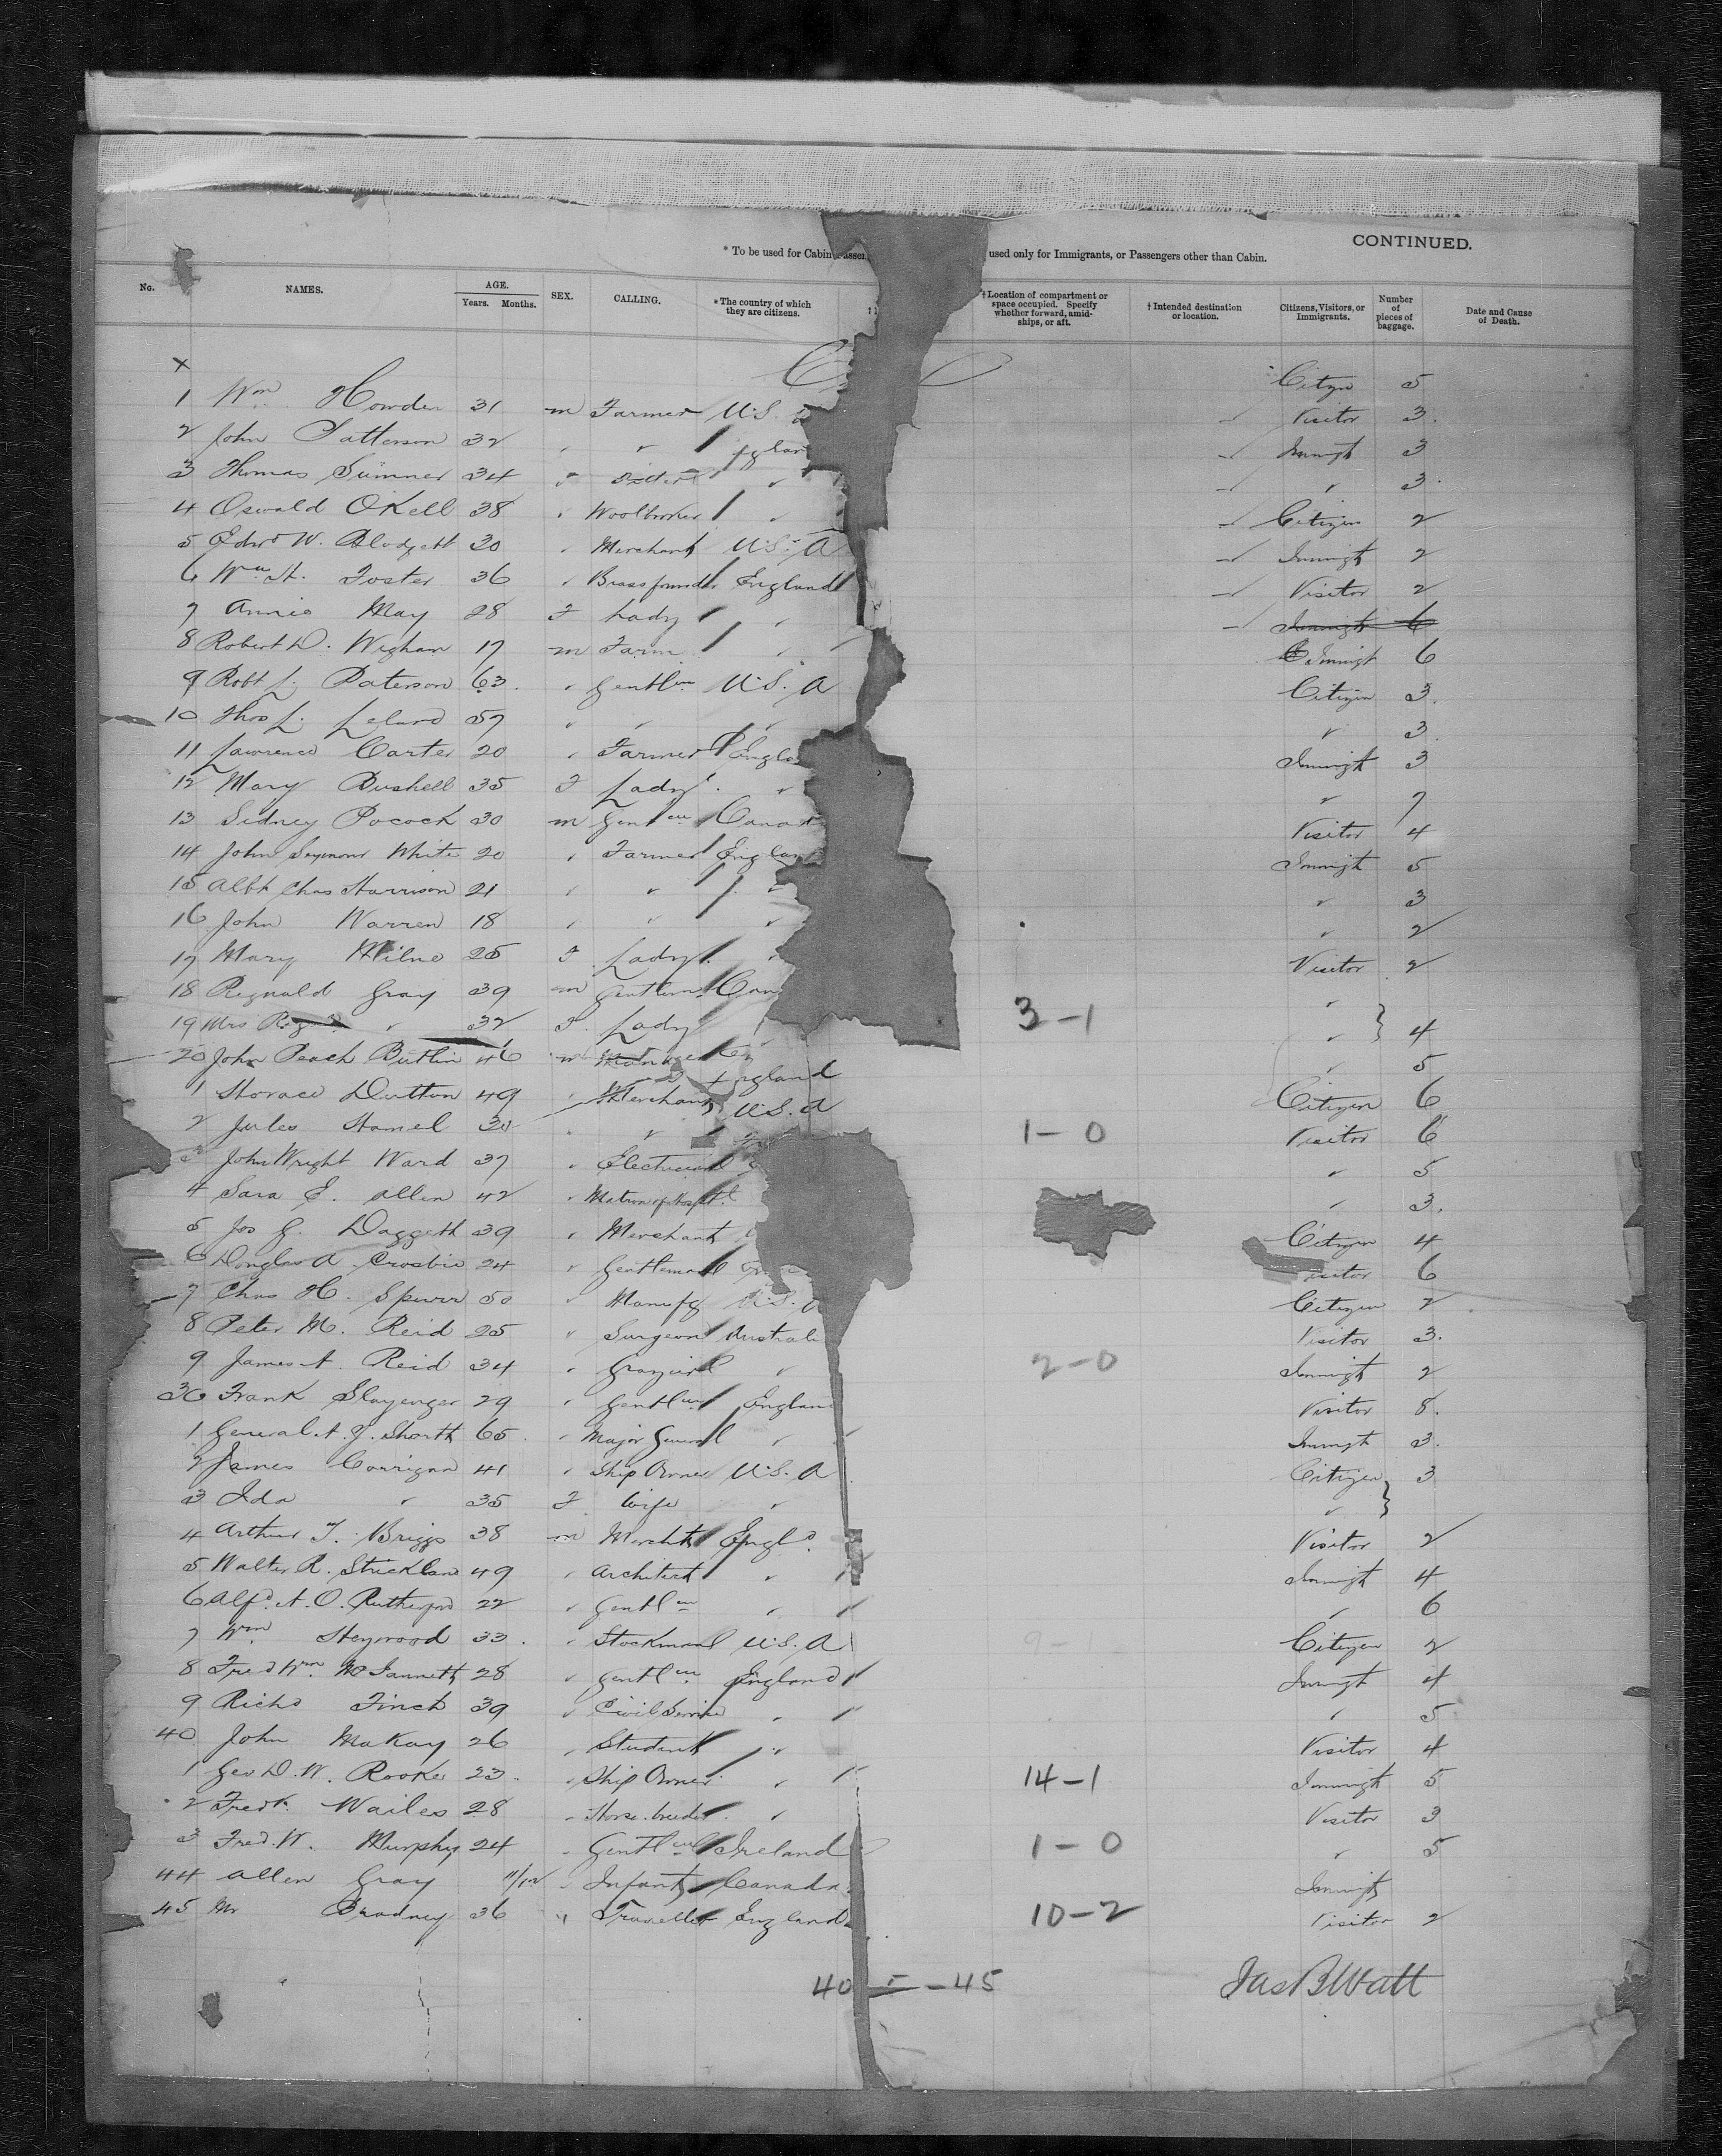 CONTINUED.
* To be used for Cabin Passen used only for Immigrants, or Passengers other than Cabin.
No. NAMES. AGE. Years. Months. SEX. CALLING. * The country of which they are citizens. † Location of compartment or space occupied. Specify whether forward, amidships, or aft. † Intended destination or location. Citizens, Visitors, or Immigrants. Number of pieces of baggage. Date and Cause of Death.
x
1 Wm Howden 31 m Farmer U.S. Cityn 5
2 John Patterson 32 " " Visitor 3
3 Thomas Sumner 34 " " Immigt 3
4 Oswald OKell 38 " Woolbroker " " 3
5 Edwd W. Blodgett 30 " Merchant U.S. A Citizen 2
6 Wm H. Foster 36 " Brassfounder England Immigt 2
7 Annie May 28 F Lady " Visitor 2
8 Robert D. Wigham 17 m Farm " Immigt 6
9 Robt L. Paterson 63 " Gentlm U.S. A Citizen 3
10 Thos L. Leland 57 " " " " 3
11 Lawrence Carter 20 " Farmer Engla Immigt 3
12 Mary Bushell 35 F Lady " " 7
13 Sidney Pocock 30 m Gentem Canad Visitor 4
14 John Seymour White 20 " Farmer Englan Immigt 5
15 Albt Chas Harrison 21 " " " " 3
16 John Warren 18 " " " " 2
17 Mary Milne 25 F Lady " Visitor 2
18 Reginald Gray 39 m Gentlem Can "
19 Mrs Regd " 32 F. Lady 3-1 " } 4
20 John Peach Butlin 46 m England " 5
1 Horace Dutton 49 " Merchant U.S. A Citizen 6
2 Jules Hamel 30 " " 1-0 Visitor 6
3 John Wright Ward 37 " Electrician " 5
4 Sara E. Allen 42 " Matron of Hosptl " 3
5 Jos G. Daggett 39 " Merchant Citizen 4
6 Douglas A. Crosbie 24 " Gentleman isitor 6
7 Chas H. Spurr 50 " Manufg U.S. Citizen 2
8 Peter M. Reid 25 " Surgeon Australi Visitor 3
9 James A. Reid 34 " Grazier " 2-0 Immigt 2
30 Frank Slazenger 29 " Gentlm Englan Visitor 8
1 General A. J. Shortt 65 " Major General " Immigt 3
2 James Corrigan 41 " Ship Owner U.S. A Citizen 3
3 Ida " 35 F Wife " " }
4 Arthur T. Briggs 38 m Mercht Engld. Visitor 2
5 Walter R. Strickland 49 " Architect " Immigt 4
6 Alfd. A. O. Rutherford 22 " Gentlm " " 6
7 Wm Heywood 33 " Stockman U.S. A Citizen 2
8 Fred Wm 28 " Gentlm England Immigt 4
9 Richd Finch 39 " Civil Service " " 5
40 John MaKay 26 " Student " Visitor 4
1 Geo D. W. Rooke 23 " Ship Owner " 14-1 Immigt 5
2 Fredk. Wailes 28 " Horse breeder " Visitor 3
3 Fred. W. Murphy 24 " Gentlm Ireland 1-0 " 5
44 Allen Gray 11/12 " Infant Canada Immigt
45 Mr Bradney 36 " Traveller England 10-2 Visitor 2
40 - 45 Jas B Watt